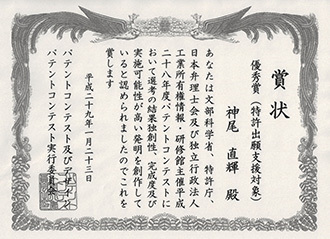 賞状
優秀賞(特許出願支援対象)
神尾 直輝 殿
あなたは文部科学省、特許庁、
日本弁理士会及び独立行政法人
工業所有権情報・研修館主催平成
二十八年度パテントコンテストに
おいて選考の結果独創性、完成度及び
実施可能性が高い発明を創作して
いると認められましたのでこれを
賞します
平成二十九年一月二十三日
パテントコンテスト及びデザイン
パテントコンテスト実行委員会